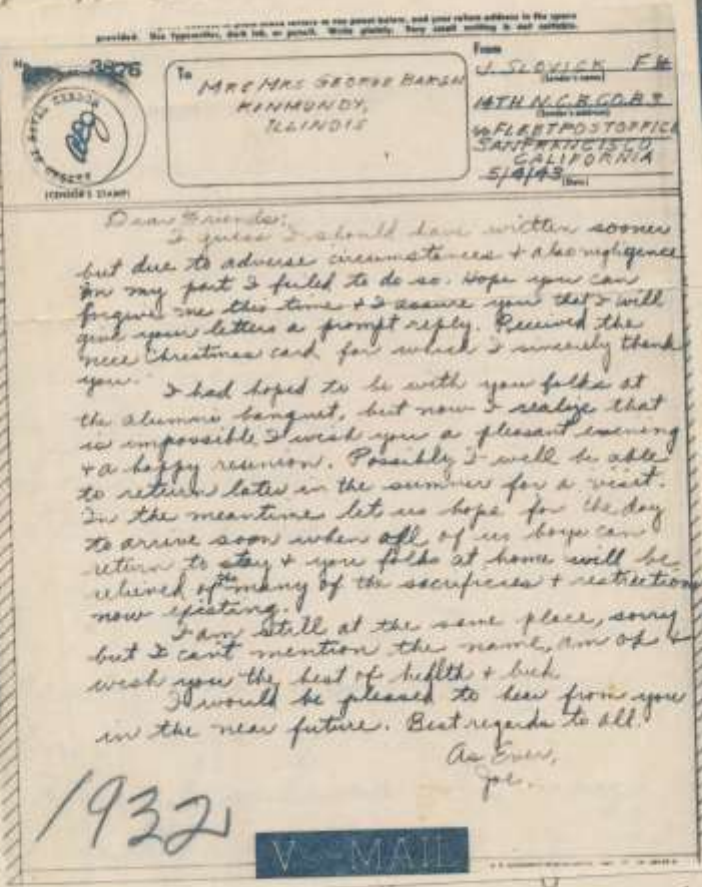 provided. Use typewriter, dark ink, or pencil. Write plainly. Very small writing is not suitable.
No. 3876
(CENSOR'S STAMP)
To
MR & MRS GEORGE
KINMUNDY,
ILLINOIS
From
J. SLOVICK
(Sender's name)
14TH N.C.B. CO.
(Sender's address)
℅ FLEET POST OFFICE
SAN FRANCISCO
CALIFORNIA
5/4/43
(Date)
Dear Friends:
I guess I should have written sooner
but due to adverse circumstances + also negligence
on my part I failed to do so. Hope you can
forgive me this time + I assure you that I will
give your letters a prompt reply. Received the
nice Christmas card for which I sincerely thank
you.
I had hoped to be with you folks at
the alumni banquet, but now I realize that
is impossible I wish you a pleasant evening
+ a happy reunion. Possibly I will be able
to return later in the summer for a visit.
In the meantime let us hope for the day
to arrive soon when all of us boys can
return to stay + you folks at home will be
relieved of the many of the sacrificies + restrictions
now existing.
I am still at the same place, sorry
but I cant mention the name, am ok +
wish you the best of health + luck
I would be pleased to hear from you
in the near future. Best regards to all.
As Ever,
Joe.
1932
V - MAIL